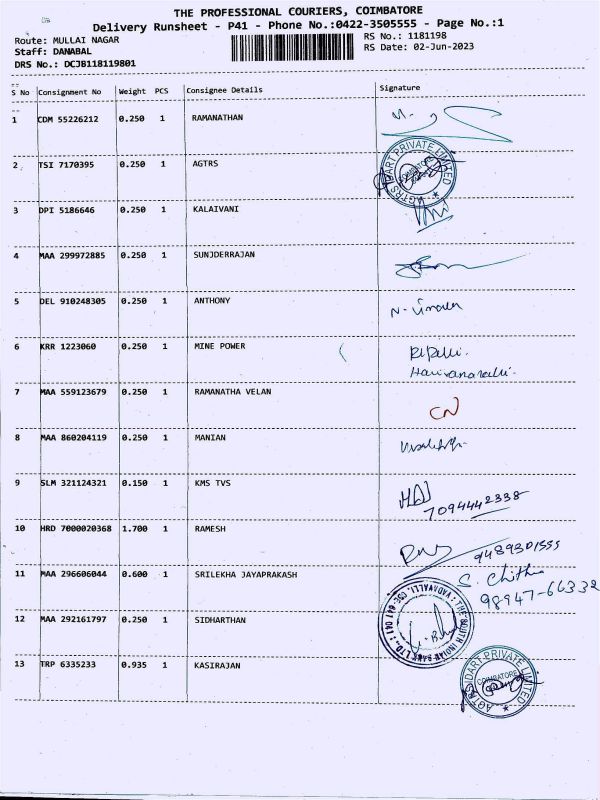 THE PROFESSIONAL COURIERS, COIMBATORE
Delivery Runsheet - P41 - Phone No.:0422-3505555 - Page No.:1
Route: MULLAI NAGAR RS No.: 1181198
Staff: DANABAL RS Date: 02-Jun-2023
DRS No.: DCJB118119801
S No Consignment No Weight PCS Consignee Details Signature
1 CDM 55226212 0.250 1 RAMANATHAN
2 TSI 7170395 0.250 1 AGTRS
AGTRS IDART PRIVATE LIMITED
COIMBATORE
3 DPI 5186646 0.250 1 KALAIVANI
4 MAA 299972885 0.250 1 SUNJDERRAJAN
5 DEL 910248305 0.250 1 ANTHONY
6 KRR 1223060 0.250 1 MINE POWER
7 MAA 559123679 0.250 1 RAMANATHA VELAN CN
8 MAA 860204119 0.250 1 MANIAN
9 SLM 321124321 0.150 1 KMS TVS
7094442338
10 HRD 7000020368 1.700 1 RAMESH 9489301555
11 MAA 296606044 0.600 1 SRILEKHA JAYAPRAKASH S. Chitha
98947-66332
12 MAA 292161797 0.250 1 SIDHARTHAN
THE SOUTH INDIAN BANK LTD., VADAVALLI, CBE-641 041
13 TRP 6335233 0.935 1 KASIRAJAN
AGTRS IDART PRIVATE LIMITED
COIMBATORE